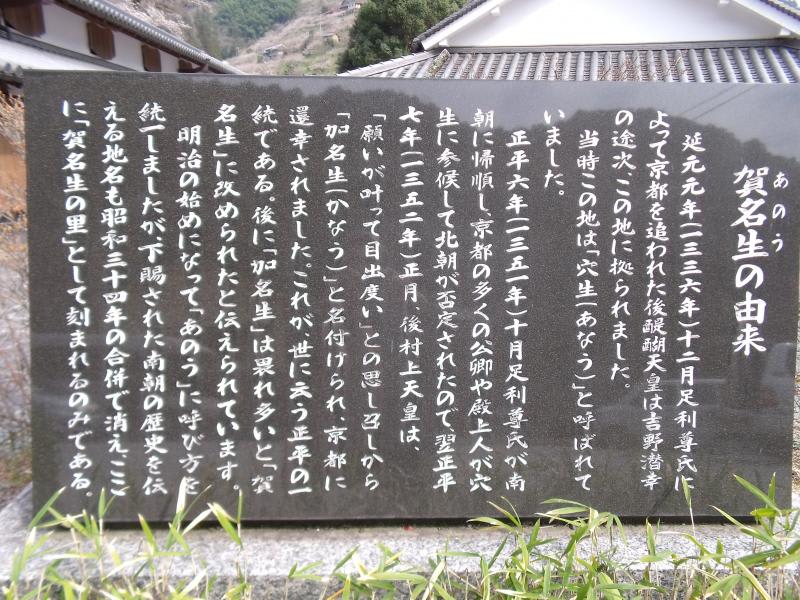 あのう
賀名生の由来
延元元年(一三三六年)十二月足利尊氏に
よって京都を追われた後醍醐天皇は吉野潜幸
の途次、この地に拠られました。
当時この地は「穴生(あなう)」と呼ばれて
いました。
正平六年(一三五一年)十月足利尊氏が南
朝に帰順し、京都の多くの公卿や殿上人が穴
生に参候して北朝が否定されたので、翌正平
七年(一三五二年)正月、後村上天皇は、
「願いが叶って目出度い」との思し召しから
「加名生(かなう)」と名付けられ、京都に
還幸されました。これが、世に云う正平の一
統である。後に「加名生」は畏れ多いと「賀
名生」に改められたと伝えられています。
明治の始めになって「あのう」に呼び方を
統一しましたが、下賜された南朝の歴史を伝
える地名も昭和三十四年の合併で消え、ここ
に「賀名生の里」として刻まれるのみである。